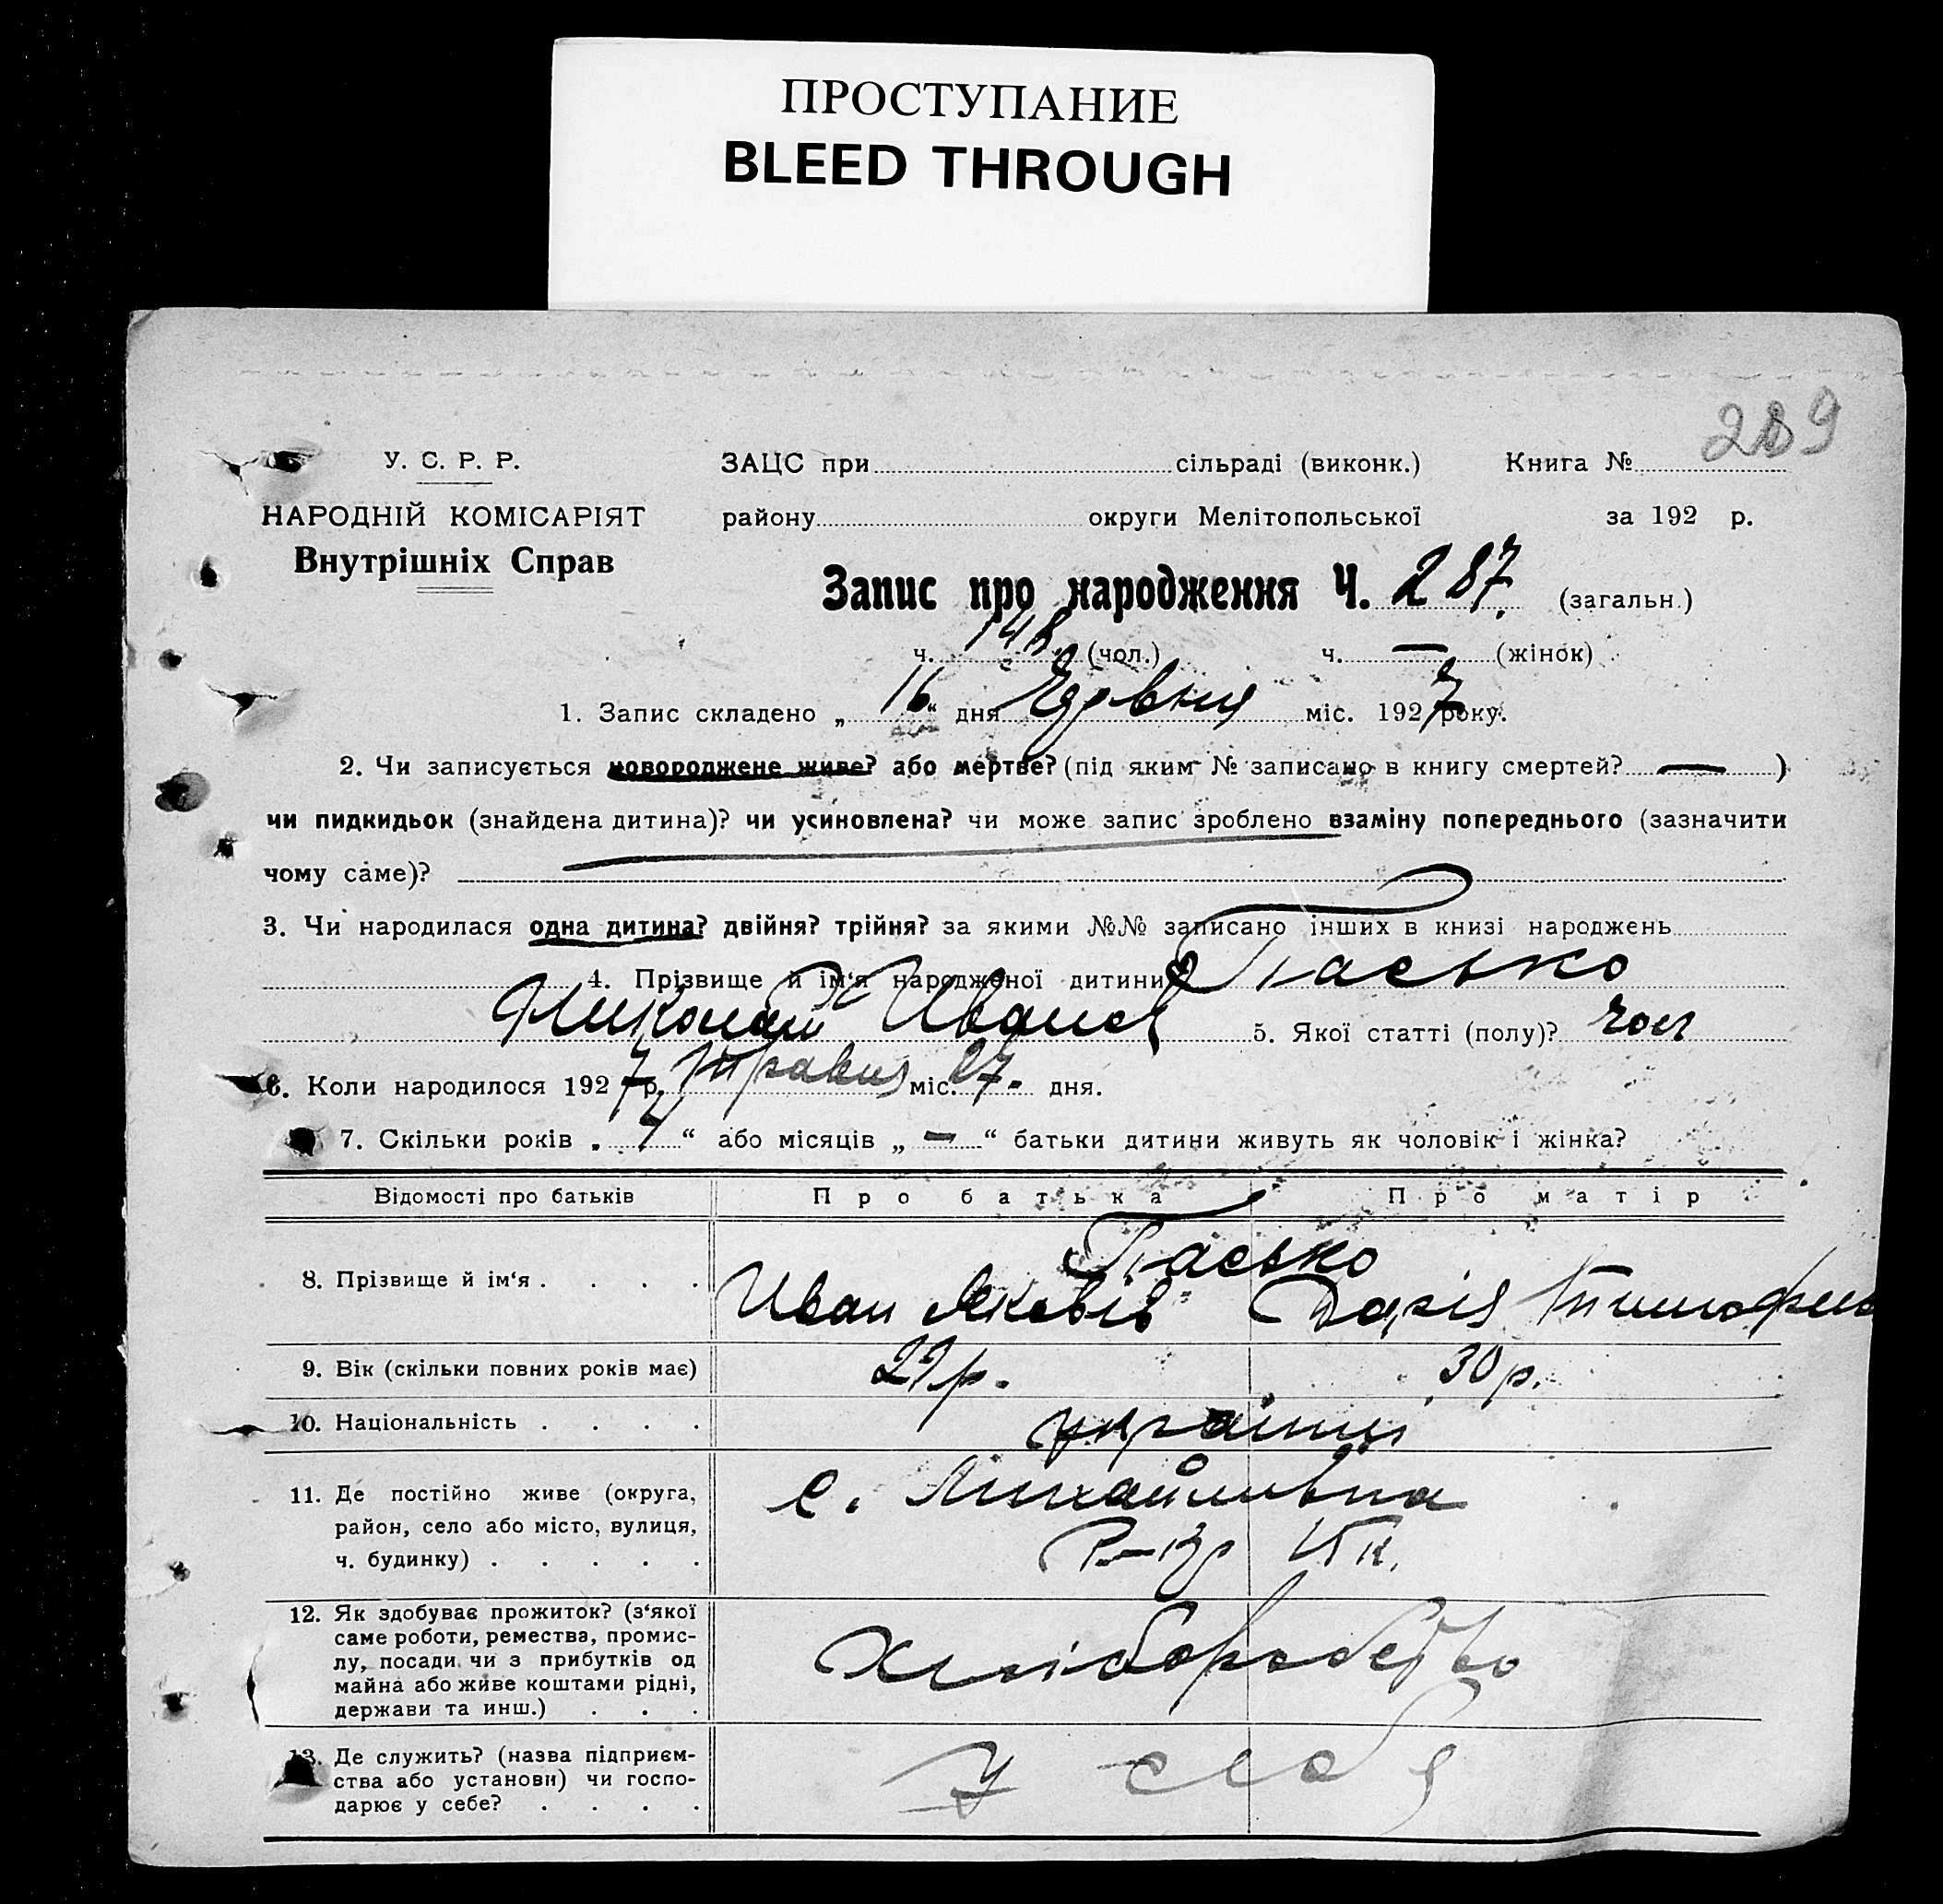 ПРОСТУПАНИЕ
BLEED THROUGH
289
У. С. Р. Р.
ЗАЦС при сільраді (виконк.) Книга №
НАРОДНІЙ КОМІСАРІЯТ
району округи Мелітопольської за 192 р.
Внутрішніх Справ
Запис про народження Ч. 287. (загальн.)
ч. 148. (чол.) ч. — (жінок)
1. Запис складено „16“ дня міс. 1927 року.
2. Чи записується новороджене живе? або мертве? (під яким № записано в книгу смертей? — )
чи пидкидьок (знайдена дитина)? чи усиновлена? чи може запис зроблено взаміну попереднього (зазначити
чому саме)?
3. Чи народилася одна дитина? двійня? трійня? за якими №№ записано інших в книзі народжень
4. Прізвище й ім‘я народженої дитини Пасько
Николай Иванов 5. Якої статті (полу)? чол
6. Коли народилося 1927 р. травня міс. 27. дня.
7. Скільки років „7“ або місяців „—“ батьки дитини живуть як чоловік і жінка?
Відомості про батьків Про батька Про матір
Пасько
8. Прізвище й ім‘я . . . . Иван Яковів Дарія
9. Вік (скільки повних років має) 29 р. 30 р.
10. Національність . . . . українці
11. Де постійно живе (округа, с. Михайлівка
район, село або місто, вулиця,
ч. будинку) . . . . .
12. Як здобуває прожиток? (з‘якої
саме роботи, ремества, промис-
лу, посади чи з прибутків од
майна або живе коштами рідні,
держави та инш.) . . .
хліборобство
13. Де служить? (назва підприєм-
ства або установи) чи госпо-
дарює у себе? . . . .
у себе